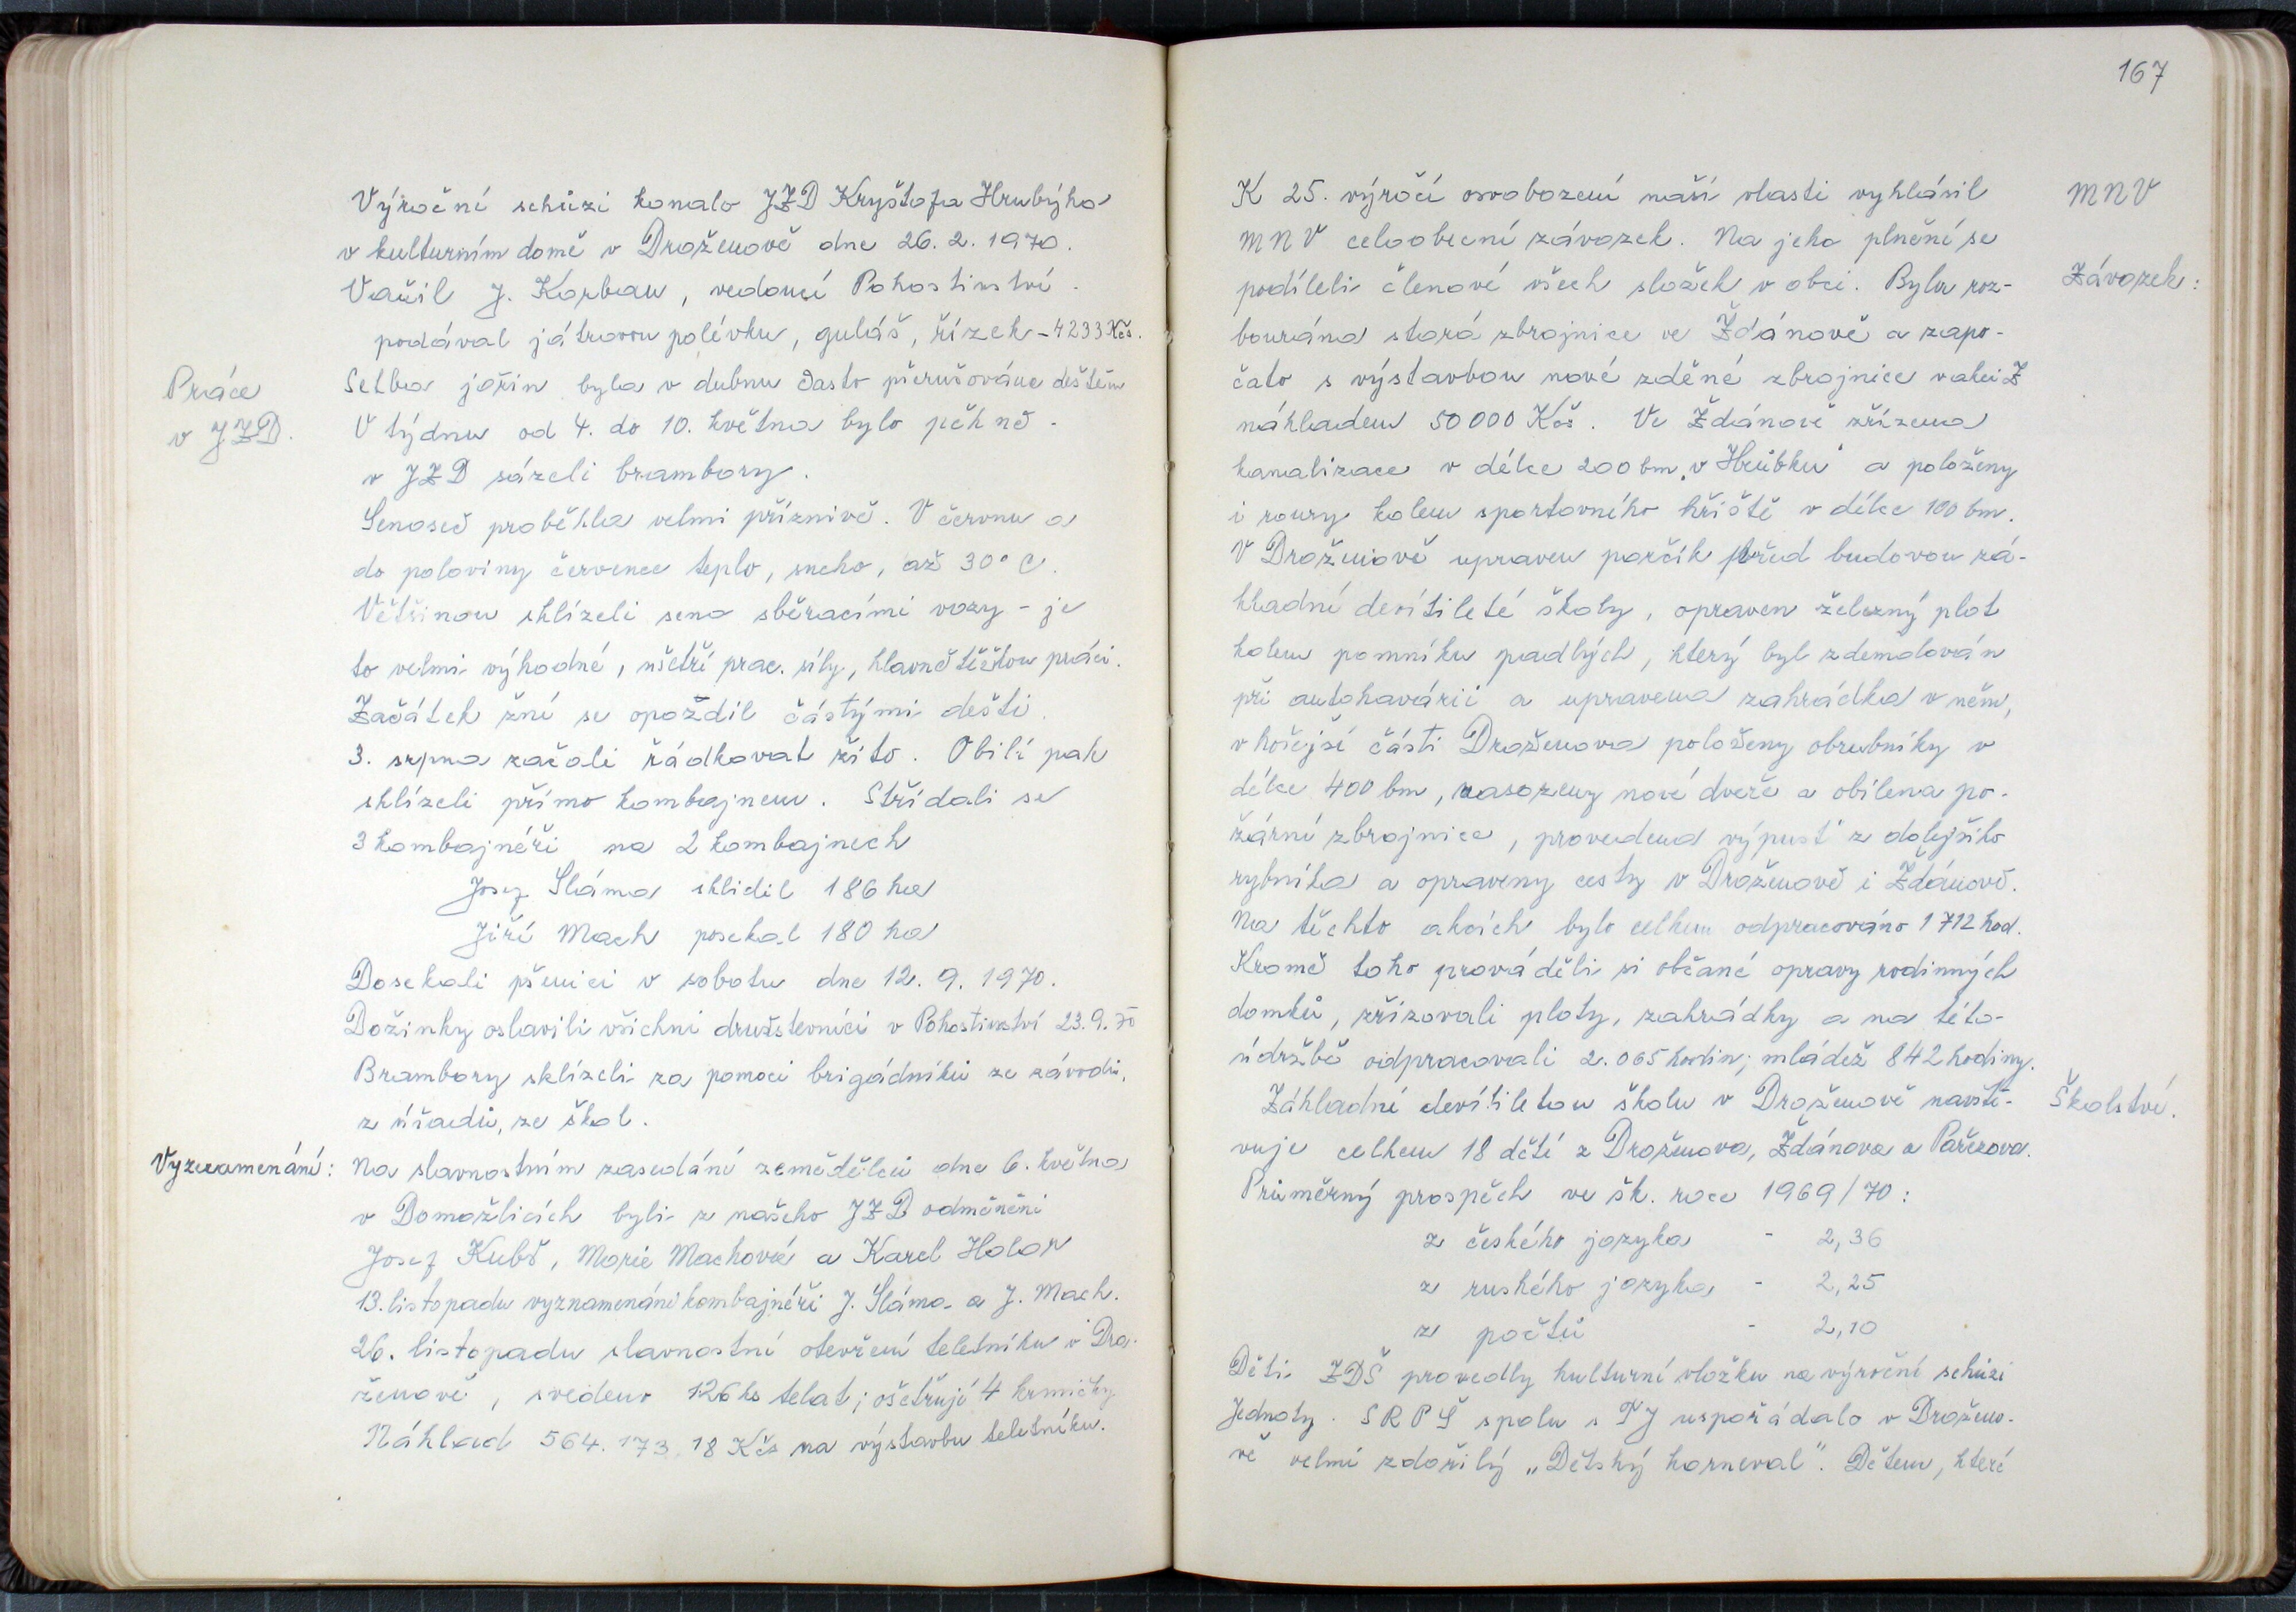 Výroční schůzi konalo JZD Kryštofa Hrubýho
v kulturním domě v Draženově dne 26. 2. 1970.
Vařil J. Korbau, vedoucí Pohostinství.
podával játrovou polévku, guláš, řízek - 4233 Kčs.
Práce
v JZD.
Setba jařin byla v dubnu často přerušována deštěm
V týdnu od 4. do 10. května bylo pěkně -
v JZD sázeli brambory.
Senoseč proběhla velmi příznivě. V červnu a
do poloviny července teplo, sucho, až 30° C.
Většinou sklízeli seno sběracími vozy - je
to velmi výhodné, ušetří prac. síly, hlavně těžkou práci.
Začátek žní se opozdil častými dešti.
3. srpna začali řádkovat žito. Obilí pak
sklízeli přímo kombajnem. Střídali se
3 kombajnéři na 2 kombajnech
Josef Sláma sklidil 186 ha
Jiří Mach posekal 180 ha
Dosekali pšenici v sobotu dne 12. 9. 1970.
Dožinky oslavili všichni družstevníci v Pohostinství 23. 9. 70
Brambory sklízeli za pomoci brigádníků ze závodů,
z úřadů, ze škol.
Vyznamenání:
Na slavnostním zasedání zemědělců dne 6. května
v Domažlicích byli z našeho JZD odměněni
Josef Kubš, Marie Machová a Karel Holar
13. listopadu vyznamenáni kombajnéři J. Sláma a J. Mach.
26. listopadu slavnostní otevření teletníku v Dra-
ženově, svedeno 126 ks telat; ošetřují 4 krmičky
Náklad 564.173.18 Kčs na výstavbu teletníku.
167
MNV
K 25. výročí osvobození naší vlasti vyhlásil
MNV celoobecní závazek. Na jeho plnění se
Závazek:
podíleli členové všech složek v obci. Byla roz-
bourána stará zbrojnice ve Ždánově a zapo-
čato s výstavbou nové zděné zbrojnice v akci Z
nákladem 50 000 Kčs. Ve Ždánově zřízena
kanalizace v délce 200 bm „v Hrůbku" a položeny
i roury kolem sportovního hřiště v délce 100 bm.
V Draženově upraven parčík před budovou zá-
kladní devítileté školy, opraven železný plot
kolem pomníku padlých, který byl zdemolován
při autohavárii a upravena zahrádka v něm,
v hořejší části Draženova položeny obrubníky v
délce 400 bm, nasazeny nové dveře a obílena po-
žární zbrojnice, provedena výpusť z dolejšího
rybníka a opraveny cesty v Draženově i Ždánově.
Na těchto akcích bylo celkem odpracováno 1 712 hod.
Kromě toho prováděli si občané opravy rodinných
domků, zřizovali ploty, zahrádky a na této
údržbě odpracovali 2.065 hodin; mládež 842 hodiny.
Školství.
Základní devítiletou školu v Draženově navště-
vuje celkem 18 dětí z Draženova, Ždánova a Pařezova.
Průměrný prospěch ve šk. roce 1969/70:
z českého jazyka - 2,36
z ruského jazyka - 2,25
z počtů - 2,10
Děti ZDŠ provedly kulturní vložku na výroční schůzi
Jednoty. SRPŠ spolu s TJ uspořádalo v Draženo-
vě velmi zdařilý „Dětský karneval". Dětem, které